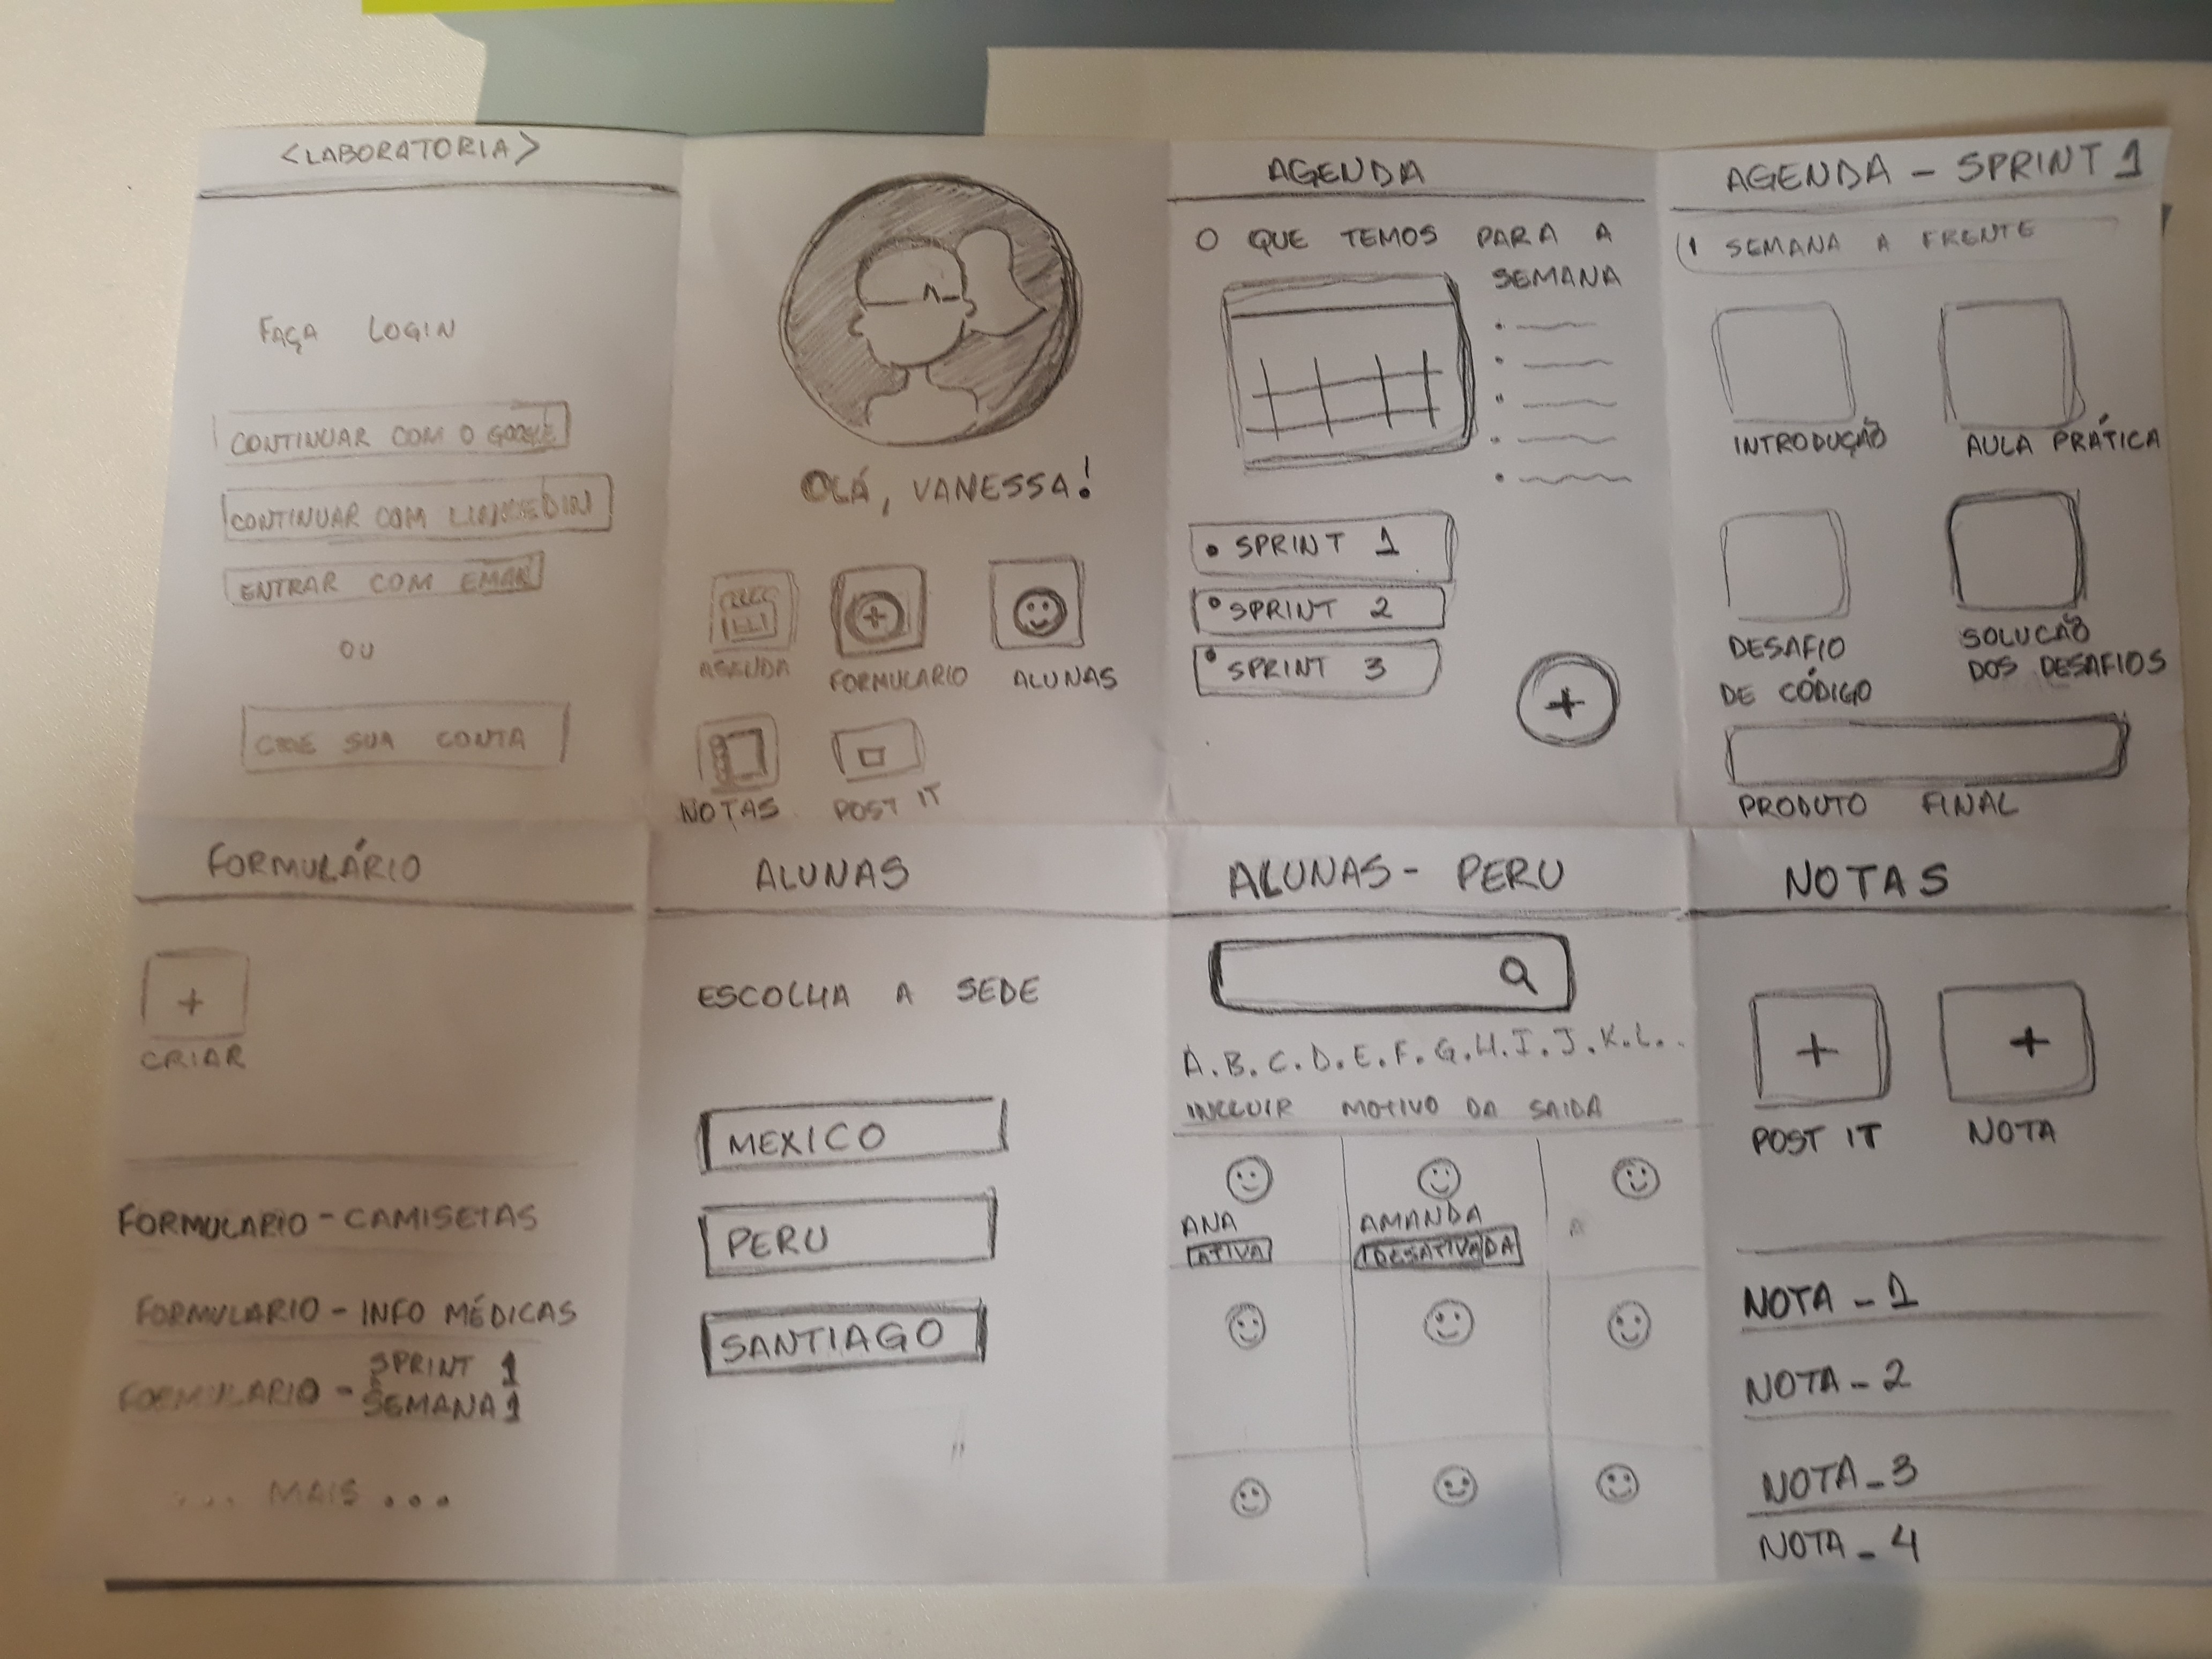 <LABORATORIA>
FAÇA LOGIN
CONTINUAR COM O GOOGLE
CONTINUAR COM LINKEDIN
ENTRAR COM EMAIL
OU
CRIE SUA CONTA
OLÁ, VANESSA!
AGENDA
FORMULARIO
ALUNAS
NOTAS
POST IT
AGENDA
O QUE TEMOS PARA A
SEMANA
SPRINT 1
SPRINT 2
SPRINT 3
+
AGENDA - SPRINT 1
1 SEMANA A FRENTE
INTRODUÇÃO
AULA PRÁTICA
DESAFIO
DE CÓDIGO
SOLUCÃO
DOS DESAFIOS
PRODUTO FINAL
FORMULÁRIO
+
CRIAR
FORMULARIO - CAMISETAS
FORMULARIO - INFO MÉDICAS
FORMULARIO - SPRINT 1
SEMANA 1
... MAIS ...
ALUNAS
ESCOLHA A SEDE
MEXICO
PERU
SANTIAGO
ALUNAS - PERU
A.B.C.D.E.F.G.H.I.J.K.L..
INCLUIR MOTIVO DA SAIDA
ANA
ATIVA
AMANDA
DESATIVADA
A
NOTAS
+
POST IT
+
NOTA
NOTA - 1
NOTA - 2
NOTA - 3
NOTA - 4